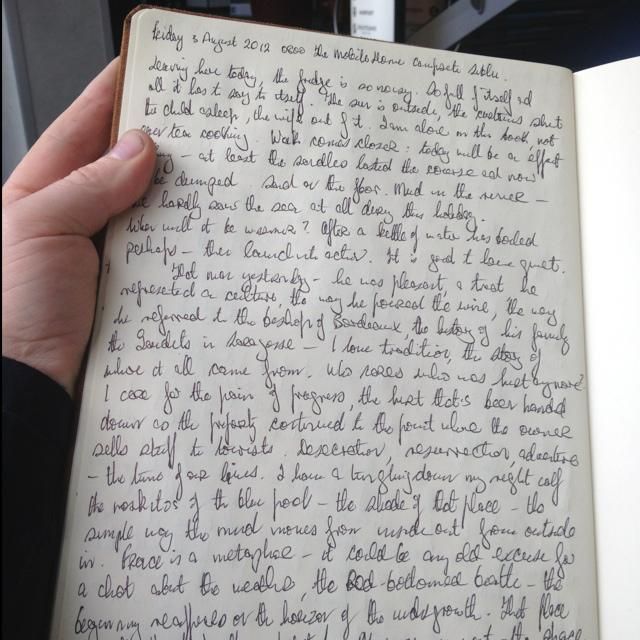 Friday 3 August 2012 0800 The Mobile Home Campsite
Leaving here today, the fridge is so noisy. So full of itself and
all it has to say to itself. The sun is outside, the curtains shut
the child asleep, the wife out of it. I am alone in this book, not
over tea cooking. Work comes closer: today will be an effort
at least the sandles lasted the course and now
be dumped sand on the floor. Mud in the river -
we hardly saw the sea at all during this holiday.
When will it be warmer? After a kettle of water has boiled
perhaps - then launch into action. It is good to have quiet.
That man yesterday - he was pleasant, a treat he
represented a culture, the way he poured the wine, the way
he referred to the bishop of Bordeaux the history of his family
the in - I love tradition, the story of
where it all came from. Who cares who was hurt anymore?
I care for the pain of progress, the hurt that's been handed
down as the property continued to the point where the owner
sells itself to tourists. Desecration, resurrection, adventure
- the time of our lives. I have a tingling down my right calf
the moskitos of the blue pool - the shade of that place - the
simple way the mind moves from inside out from outside
in. Peace is a metaphor - it could be any old excuse for
a chat about the weather, the bottomed bottle - the
beginning reappears on the horizon of the undergrowth. That place